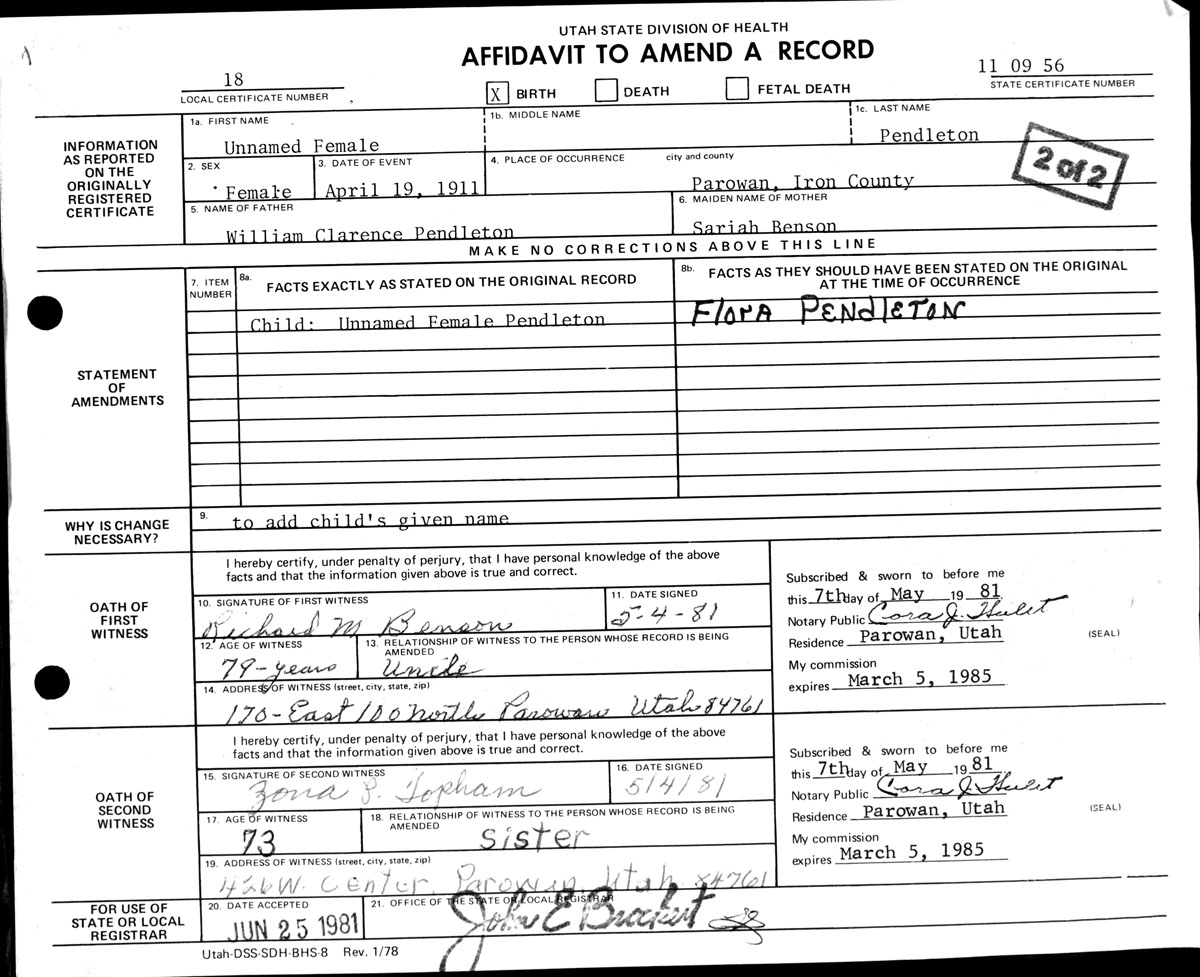 UTAH STATE DIVISION OF HEALTH
AFFIDAVIT TO AMEND A RECORD
18
LOCAL CERTIFICATE NUMBER
X BIRTH DEATH FETAL DEATH
11 09 56
STATE CERTIFICATE NUMBER
INFORMATION AS REPORTED ON THE ORIGINALLY REGISTERED CERTIFICATE
1a. FIRST NAME 1b. MIDDLE NAME 1c. LAST NAME
Unnamed Female Pendleton
2 of 2
2. SEX 3. DATE OF EVENT 4. PLACE OF OCCURRENCE city and county
Female April 19, 1911 Parowan, Iron County
5. NAME OF FATHER 6. MAIDEN NAME OF MOTHER
William Clarence Pendleton Sariah Benson
MAKE NO CORRECTIONS ABOVE THIS LINE
STATEMENT OF AMENDMENTS
7. ITEM NUMBER
8a. FACTS EXACTLY AS STATED ON THE ORIGINAL RECORD
8b. FACTS AS THEY SHOULD HAVE BEEN STATED ON THE ORIGINAL
AT THE TIME OF OCCURRENCE
Child: Unnamed Female Pendleton FlorA PENdlETON
WHY IS CHANGE NECESSARY?
9. to add child's given name
OATH OF FIRST WITNESS
I hereby certify, under penalty of perjury, that I have personal knowledge of the above
facts and that the information given above is true and correct.
10. SIGNATURE OF FIRST WITNESS 11. DATE SIGNED
Richard M Benson 5-4-81
12. AGE OF WITNESS 13. RELATIONSHIP OF WITNESS TO THE PERSON WHOSE RECORD IS BEING
AMENDED
79-years Uncle
14. ADDRESS OF WITNESS (street, city, state, zip)
170-East 100 North Parowan Utah 84761
Subscribed & sworn to before me
this 7th day of May 19 81
Notary Public Cora J. Hulet
Residence Parowan, Utah (SEAL)
My commission
expires March 5, 1985
OATH OF SECOND WITNESS
I hereby certify, under penalty of perjury, that I have personal knowledge of the above
facts and that the information given above is true and correct.
15. SIGNATURE OF SECOND WITNESS 16. DATE SIGNED
Zona P. Topham 5/4/81
17. AGE OF WITNESS 18. RELATIONSHIP OF WITNESS TO THE PERSON WHOSE RECORD IS BEING
AMENDED
73 Sister
19. ADDRESS OF WITNESS (street, city, state, zip)
426 W. Center, Parowan, Utah 84761
Subscribed & sworn to before me
this 7th day of May 19 81
Notary Public Cora J. Hulet
Residence Parowan, Utah (SEAL)
My commission
expires March 5, 1985
FOR USE OF STATE OR LOCAL REGISTRAR
20. DATE ACCEPTED 21. OFFICE OF THE STATE OR LOCAL REGISTRAR
JUN 25 1981 John E Brockert
Utah-DSS-SDH-BHS-8 Rev. 1/78